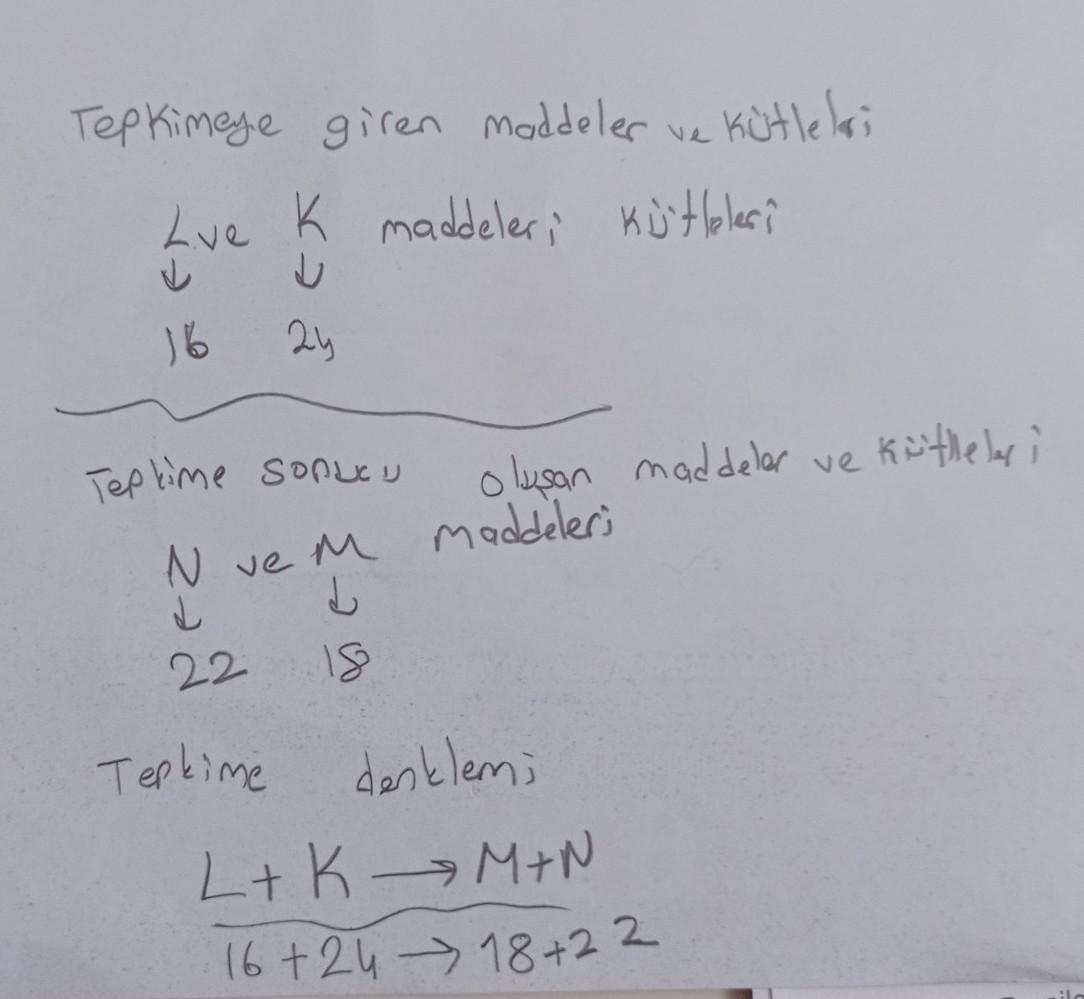 Tepkimeye giren maddeler ve kütleleri
L ve K maddeleri kütleleri
↓ ↓
16 24
Tepkime sonucu oluşan maddeler ve kütleleri
N ve M maddeleri
↓ ↓
22 18
Tepkime denklemi
L + K → M + N
16 + 24 → 18 + 22